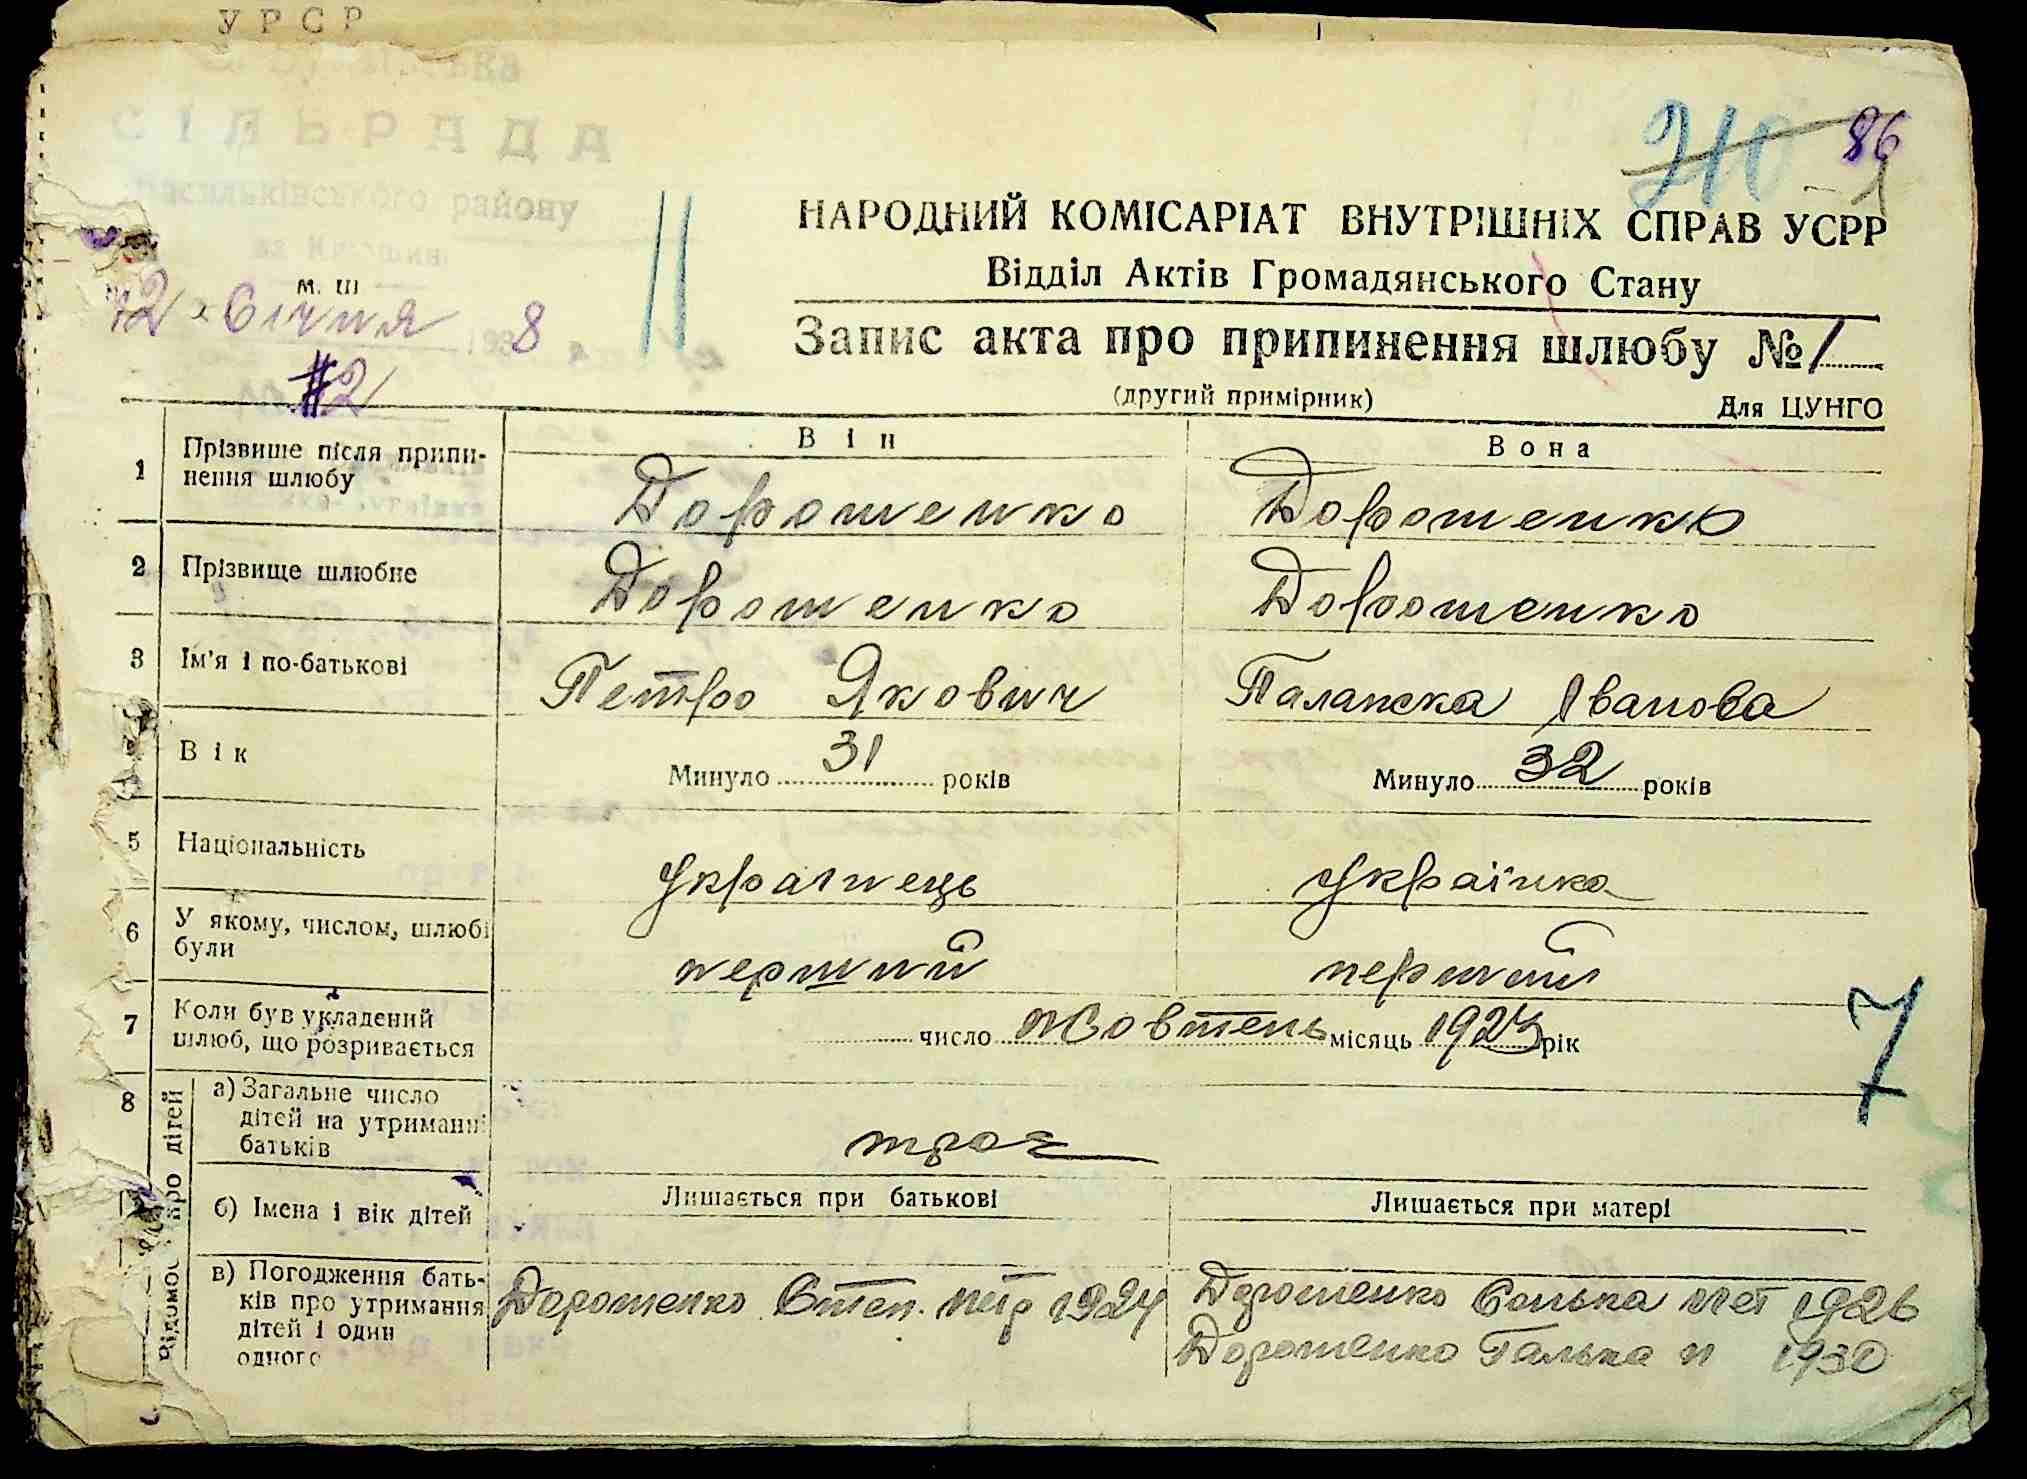 УРСР
СІЛЬРАДА
Васильківського району
210 86
НАРОДНИЙ КОМІСАРІАТ ВНУТРІШНІХ СПРАВ УСРР
Відділ Актів Громадянського Стану
м. Ш
12 Січня 193 8
Запис акта про припинення шлюбу № 1
#2
(другий примірник)
Для ЦУНГО
Він Вона
1 Прізвише після припи-
нення шлюбу
Дорошенко Дорошенко
2 Прізвище шлюбне Дорошенко Дорошенко
3 Ім'я і по-батькові Петро Якович Палажка Іванова
Вік Минуло 31 років Минуло 32 років
5 Національність Українець Українка
6 У якому, числом, шлюбі
були
перший перший
7 Коли був укладений
шлюб, що розривається
число Жовтень місяць 1923 рік
7
8 Відомос про дітей
а) Загальне число
дітей на утриманні
батьків
троє
б) Імена і вік дітей Лишається при батькові Лишається при матері
в) Погодження бать-
ків про утримання
дітей і один
одного
Дорошенко Степ. петр 1924 Дорошенко Сонька пет 1926
Дорошенко Галька п 1930